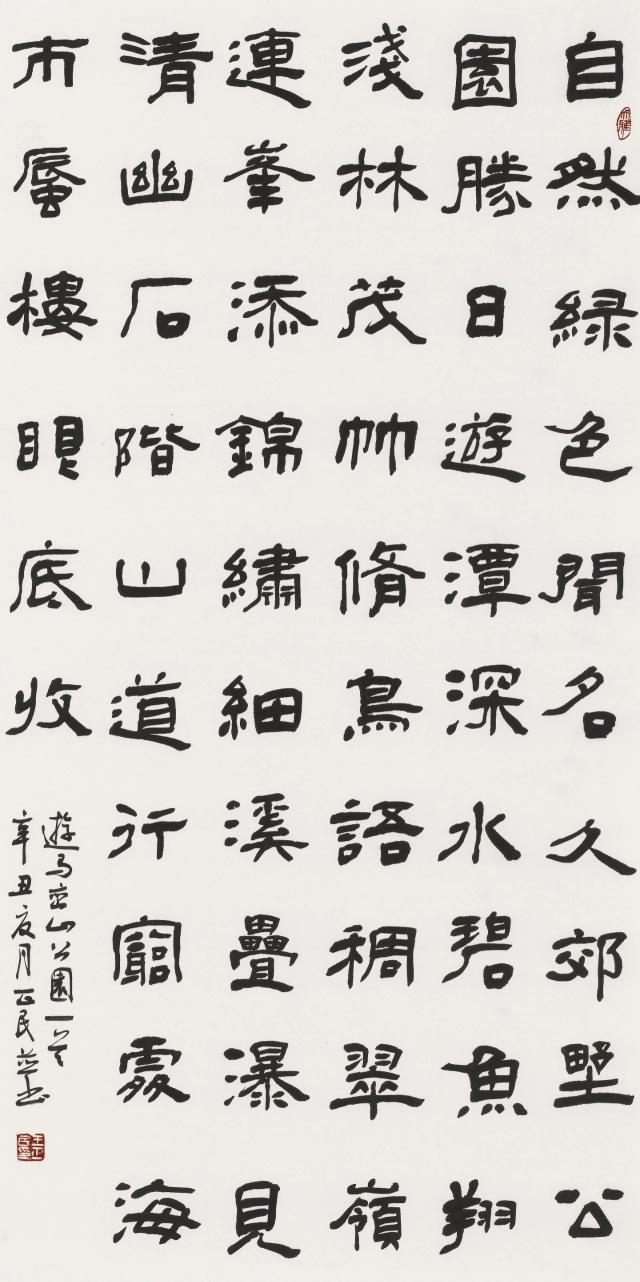 自然緑色聞名久郊野公
園勝日遊潭深水碧魚翔
淺林茂竹脩鳥語稠翠嶺
連峯添錦繡細溪疊瀑見
清幽石階山道行窮處海
市蜃樓眼底收
遊馬巒山公園一首
辛丑夏月正民并書